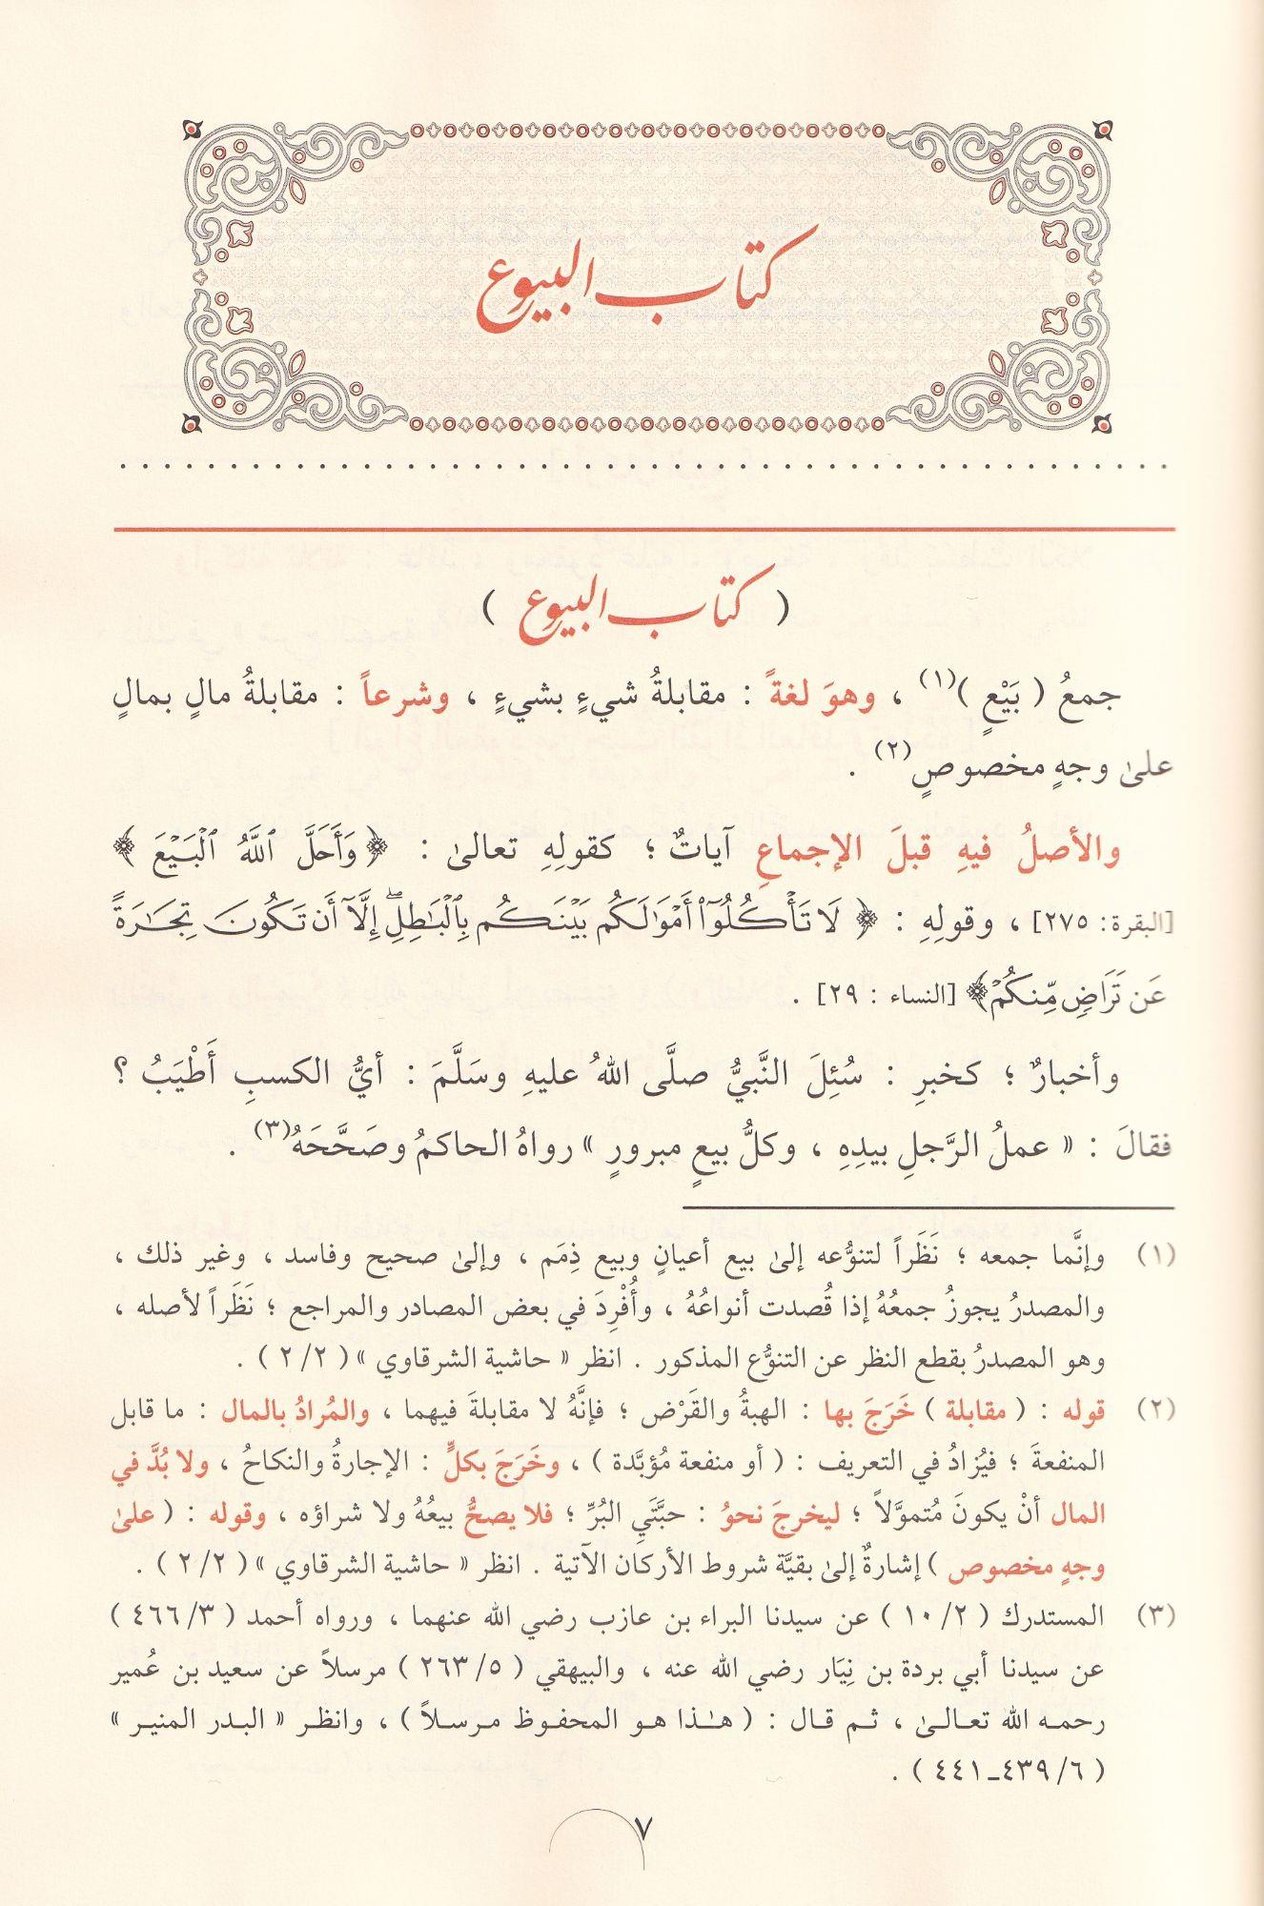 كتاب البيوع
( كتاب البيوع )
جمعُ ( بَيْعٍ )(١) ، وهوَ لغةً : مقابلةُ شيءٍ بشيءٍ ، وشرعاً : مقابلةُ مالٍ بمالٍ
علىٰ وجهٍ مخصوصٍ(٢) .
والأصلُ فيهِ قبلَ الإجماعِ آياتٌ ؛ كقولِهِ تعالىٰ : ﴿ وَأَحَلَّ ٱللَّهُ ٱلْبَيْعَ ﴾
[البقرة: ٢٧٥] ، وقولِهِ : ﴿ لَا تَأْكُلُوٓا۟ أَمْوَٰلَكُم بَيْنَكُم بِٱلْبَٰطِلِ ۖ إِلَّآ أَن تَكُونَ تِجَٰرَةً
عَن تَرَاضٍ مِّنكُمْ ﴾ [النساء : ٢٩] .
وأخبارٌ ؛ كخبرِ : سُئِلَ النَّبيُّ صلَّى اللهُ عليهِ وسَلَّمَ : أيُّ الكسبِ أَطْيَبُ ؟
فقالَ : « عملُ الرَّجلِ بيدِهِ ، وكلُّ بيعٍ مبرورٍ » رواهُ الحاكمُ وصَحَّحَهُ(٣) .
(١) وإنَّما جمعه ؛ نَظَراً لتنوُّعه إلىٰ بيع أعيانٍ وبيع ذِمَم ، وإلىٰ صحيح وفاسد ، وغير ذلك ،
والمصدرُ يجوزُ جمعُهُ إذا قُصدت أنواعُهُ ، وأُفْرِدَ في بعض المصادر والمراجع ؛ نَظَراً لأصله ،
وهو المصدرُ بقطع النظر عن التنوُّع المذكور . انظر « حاشية الشرقاوي » ( ٢/٢ ) .
(٢) قوله : ( مقابلة ) خَرَجَ بها : الهبةُ والقَرْض ؛ فإنَّهُ لا مقابلةَ فيهما ، والمُرادُ بالمال : ما قابل
المنفعةَ ؛ فيُزادُ في التعريف : ( أو منفعة مُؤبَّدة ) ، وخَرَجَ بكلٍّ : الإجارةُ والنكاحُ ، ولا بُدَّ في
المال أنْ يكونَ مُتموَّلاً ؛ ليخرجَ نحوُ : حبَّتَيِ البُرِّ ؛ فلا يصحُّ بيعُهُ ولا شراؤه ، وقوله : ( علىٰ
وجهٍ مخصوص ) إشارةٌ إلىٰ بقيَّة شروط الأركان الآتية . انظر « حاشية الشرقاوي » ( ٢/٢ ) .
(٣) المستدرك ( ١٠/٢ ) عن سيدنا البراء بن عازب رضي الله عنهما ، ورواه أحمد ( ٤٦٦/٣ )
عن سيدنا أبي بردة بن نِيَار رضي الله عنه ، والبيهقي ( ٢٦٣/٥ ) مرسلاً عن سعيد بن عُمير
رحمه الله تعالىٰ ، ثم قال : ( هـٰذا هو المحفوظ مرسلاً ) ، وانظر « البدر المنير »
( ٤٣٩/٦ـ٤٤١ ) .
٧